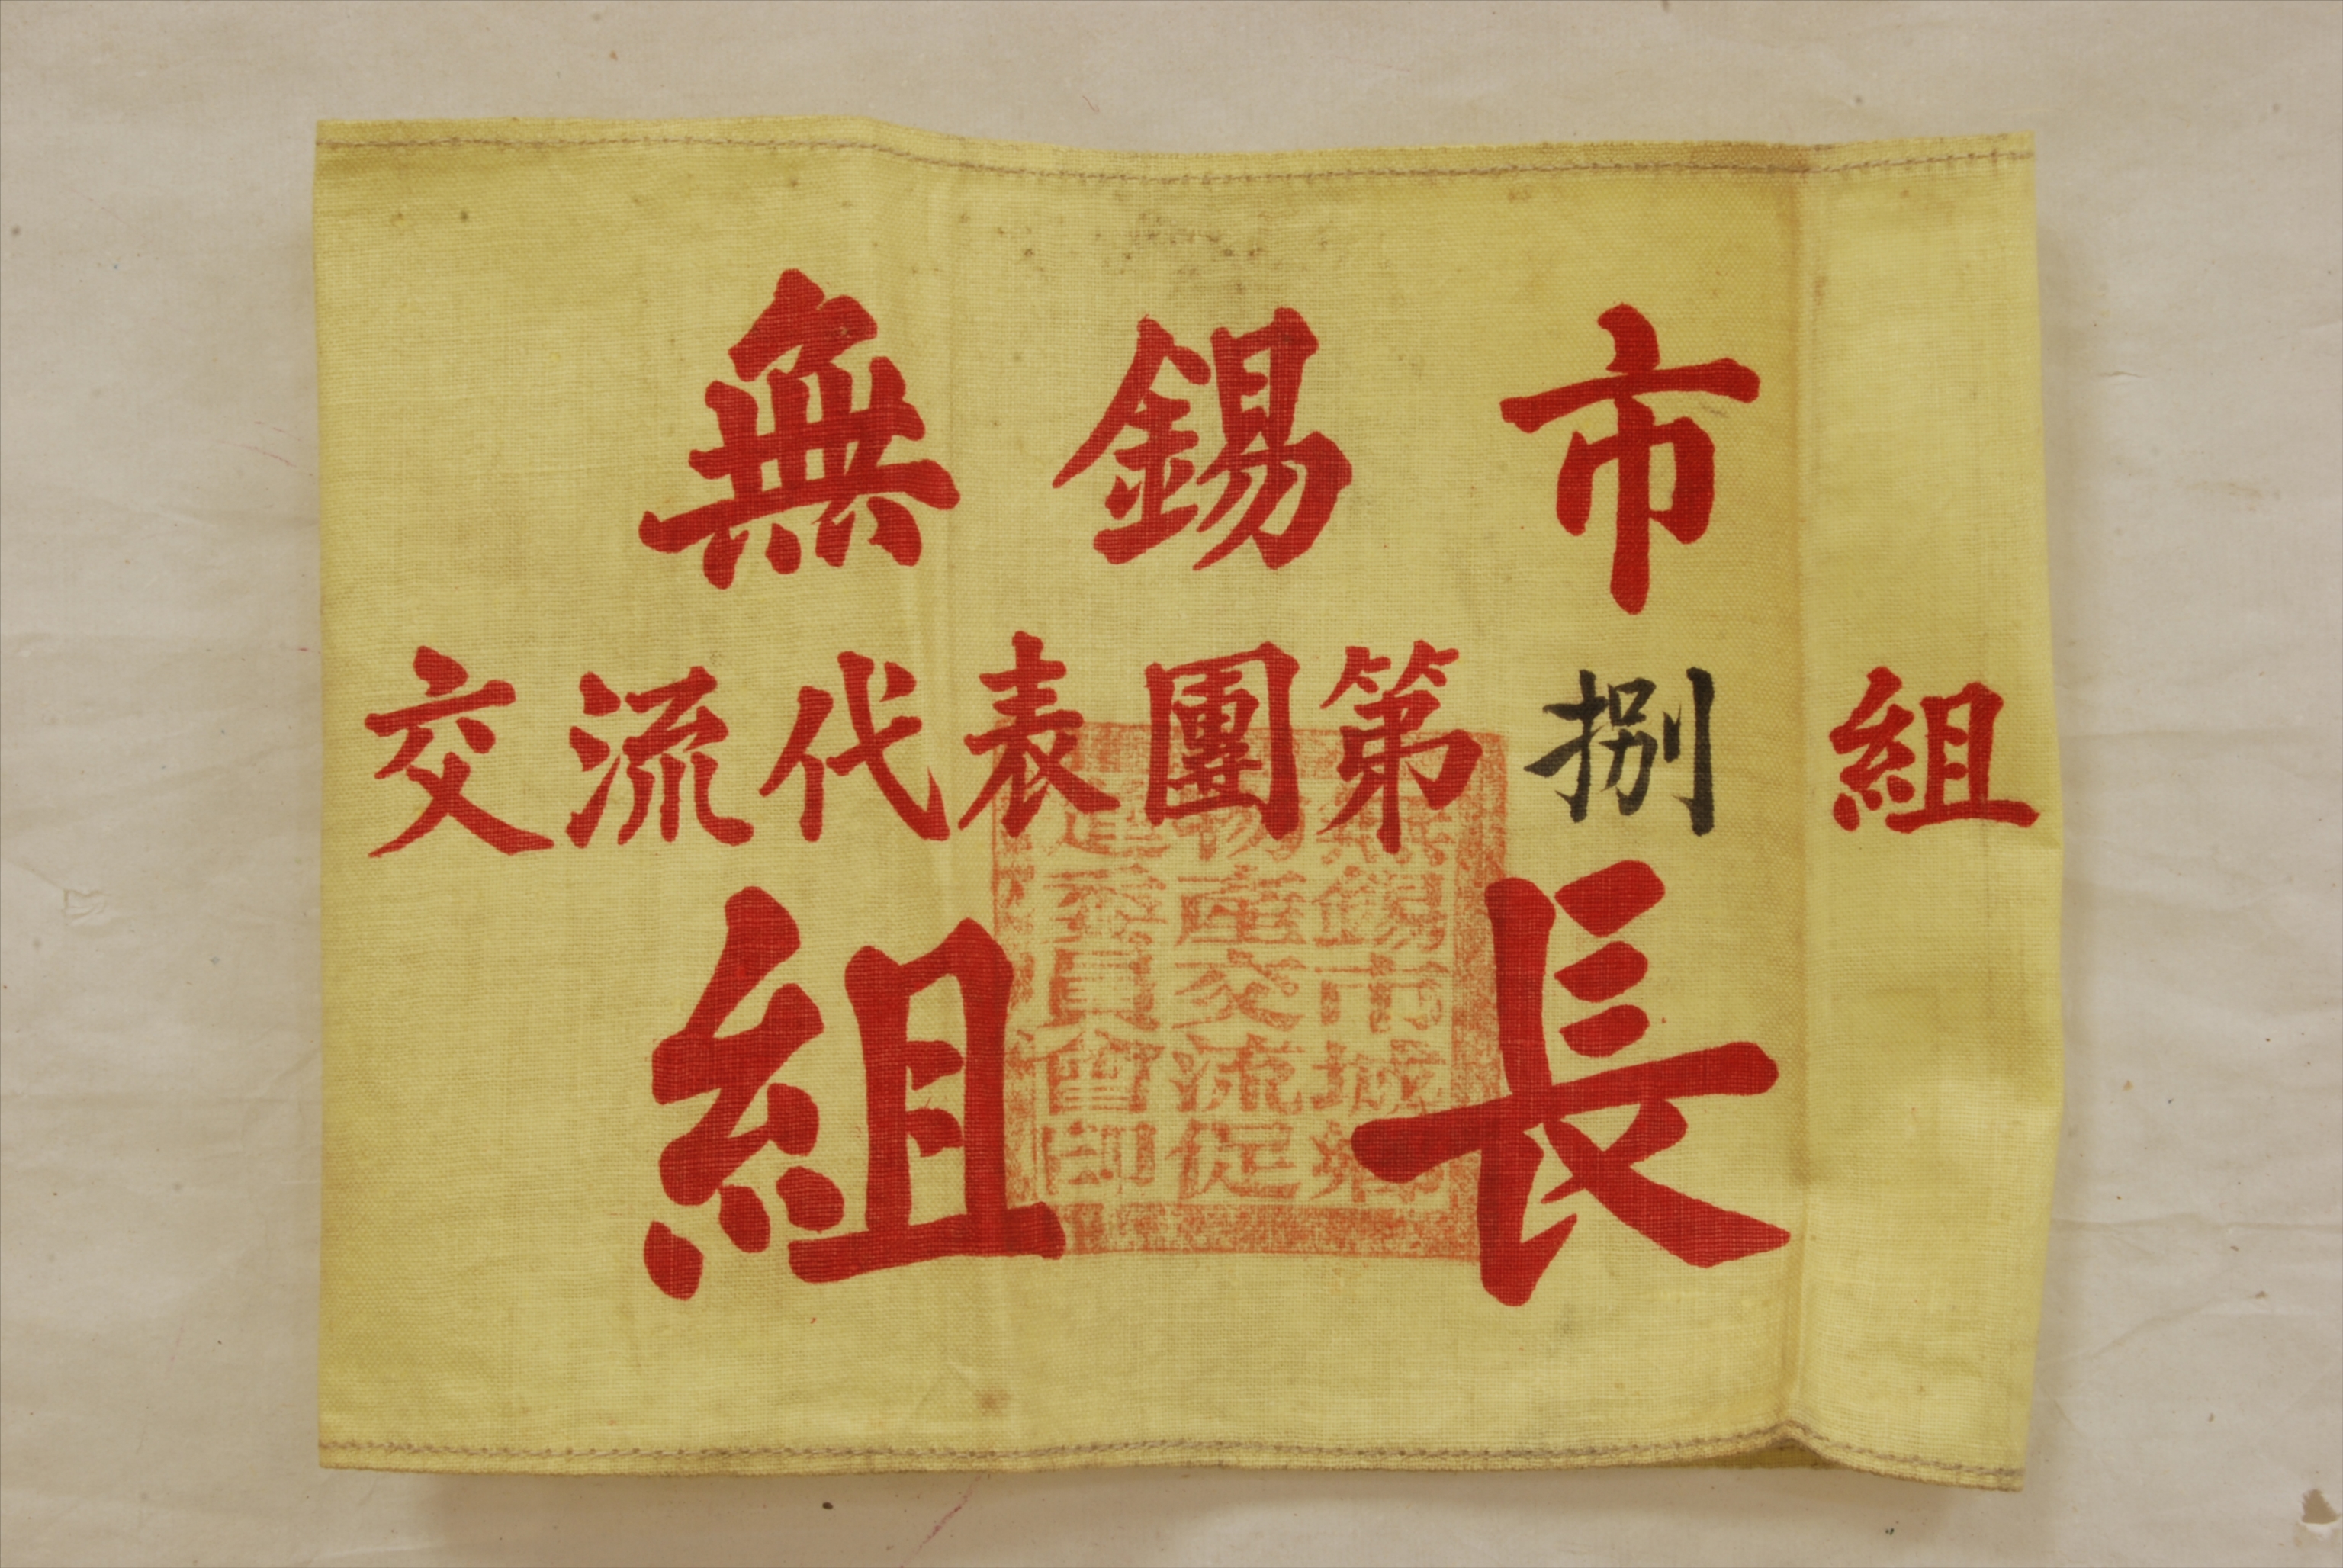 無錫市
交流代表團第捌組
組長
無錫市城鄉
物產交流促
進委員會印